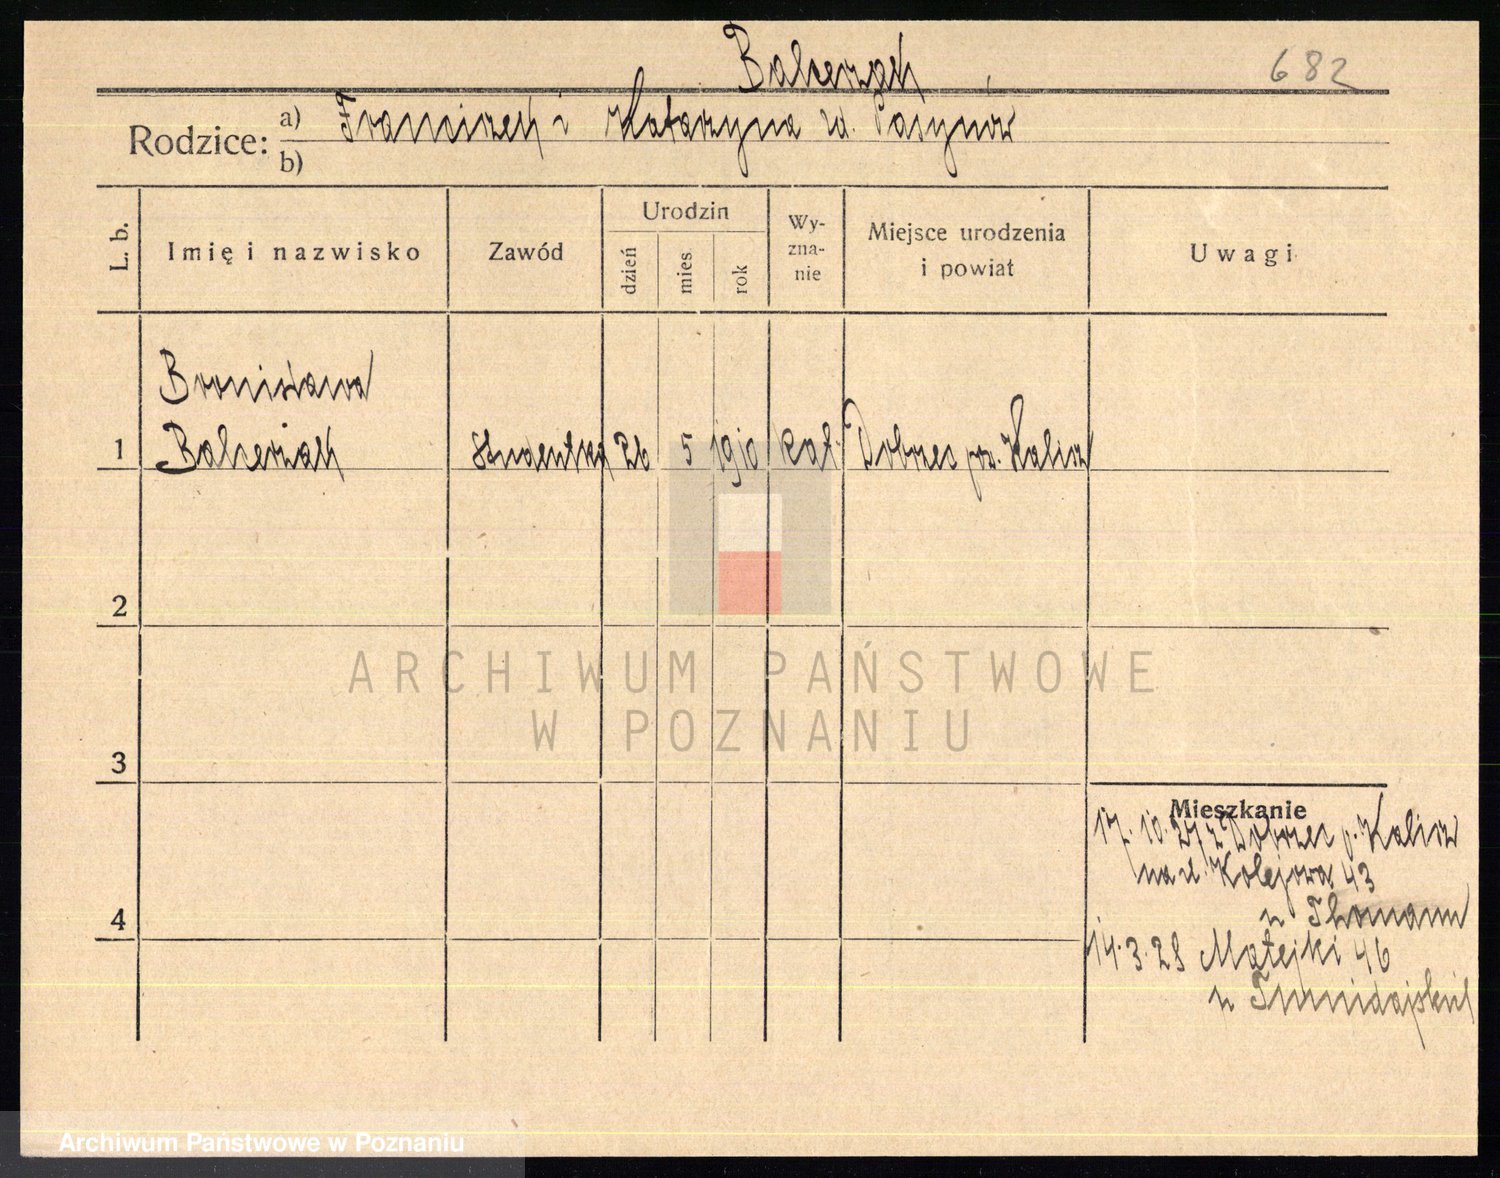 Balcerzak
682
Rodzice: a) Franciszek i Katarzyna zd. Pasynów
b)
L. b. Imię i nazwisko Zawód Urodzin dzień mies rok Wyznanie Miejsce urodzenia i powiat Uwagi
Bronisława
1 Balcerzak Studentka 26 5 1910 kat. Dobrzec pow. Kalisz
2
ARCHIWUM PAŃSTWOWE
W POZNANIU
3
Mieszkanie
17. 10. 27 z Dobrzec p. Kalisz
na ul. Kolejowa 43
4
u Thomann
14.3.28 Matejki 46
u
Archiwum Państwowe w Poznaniu